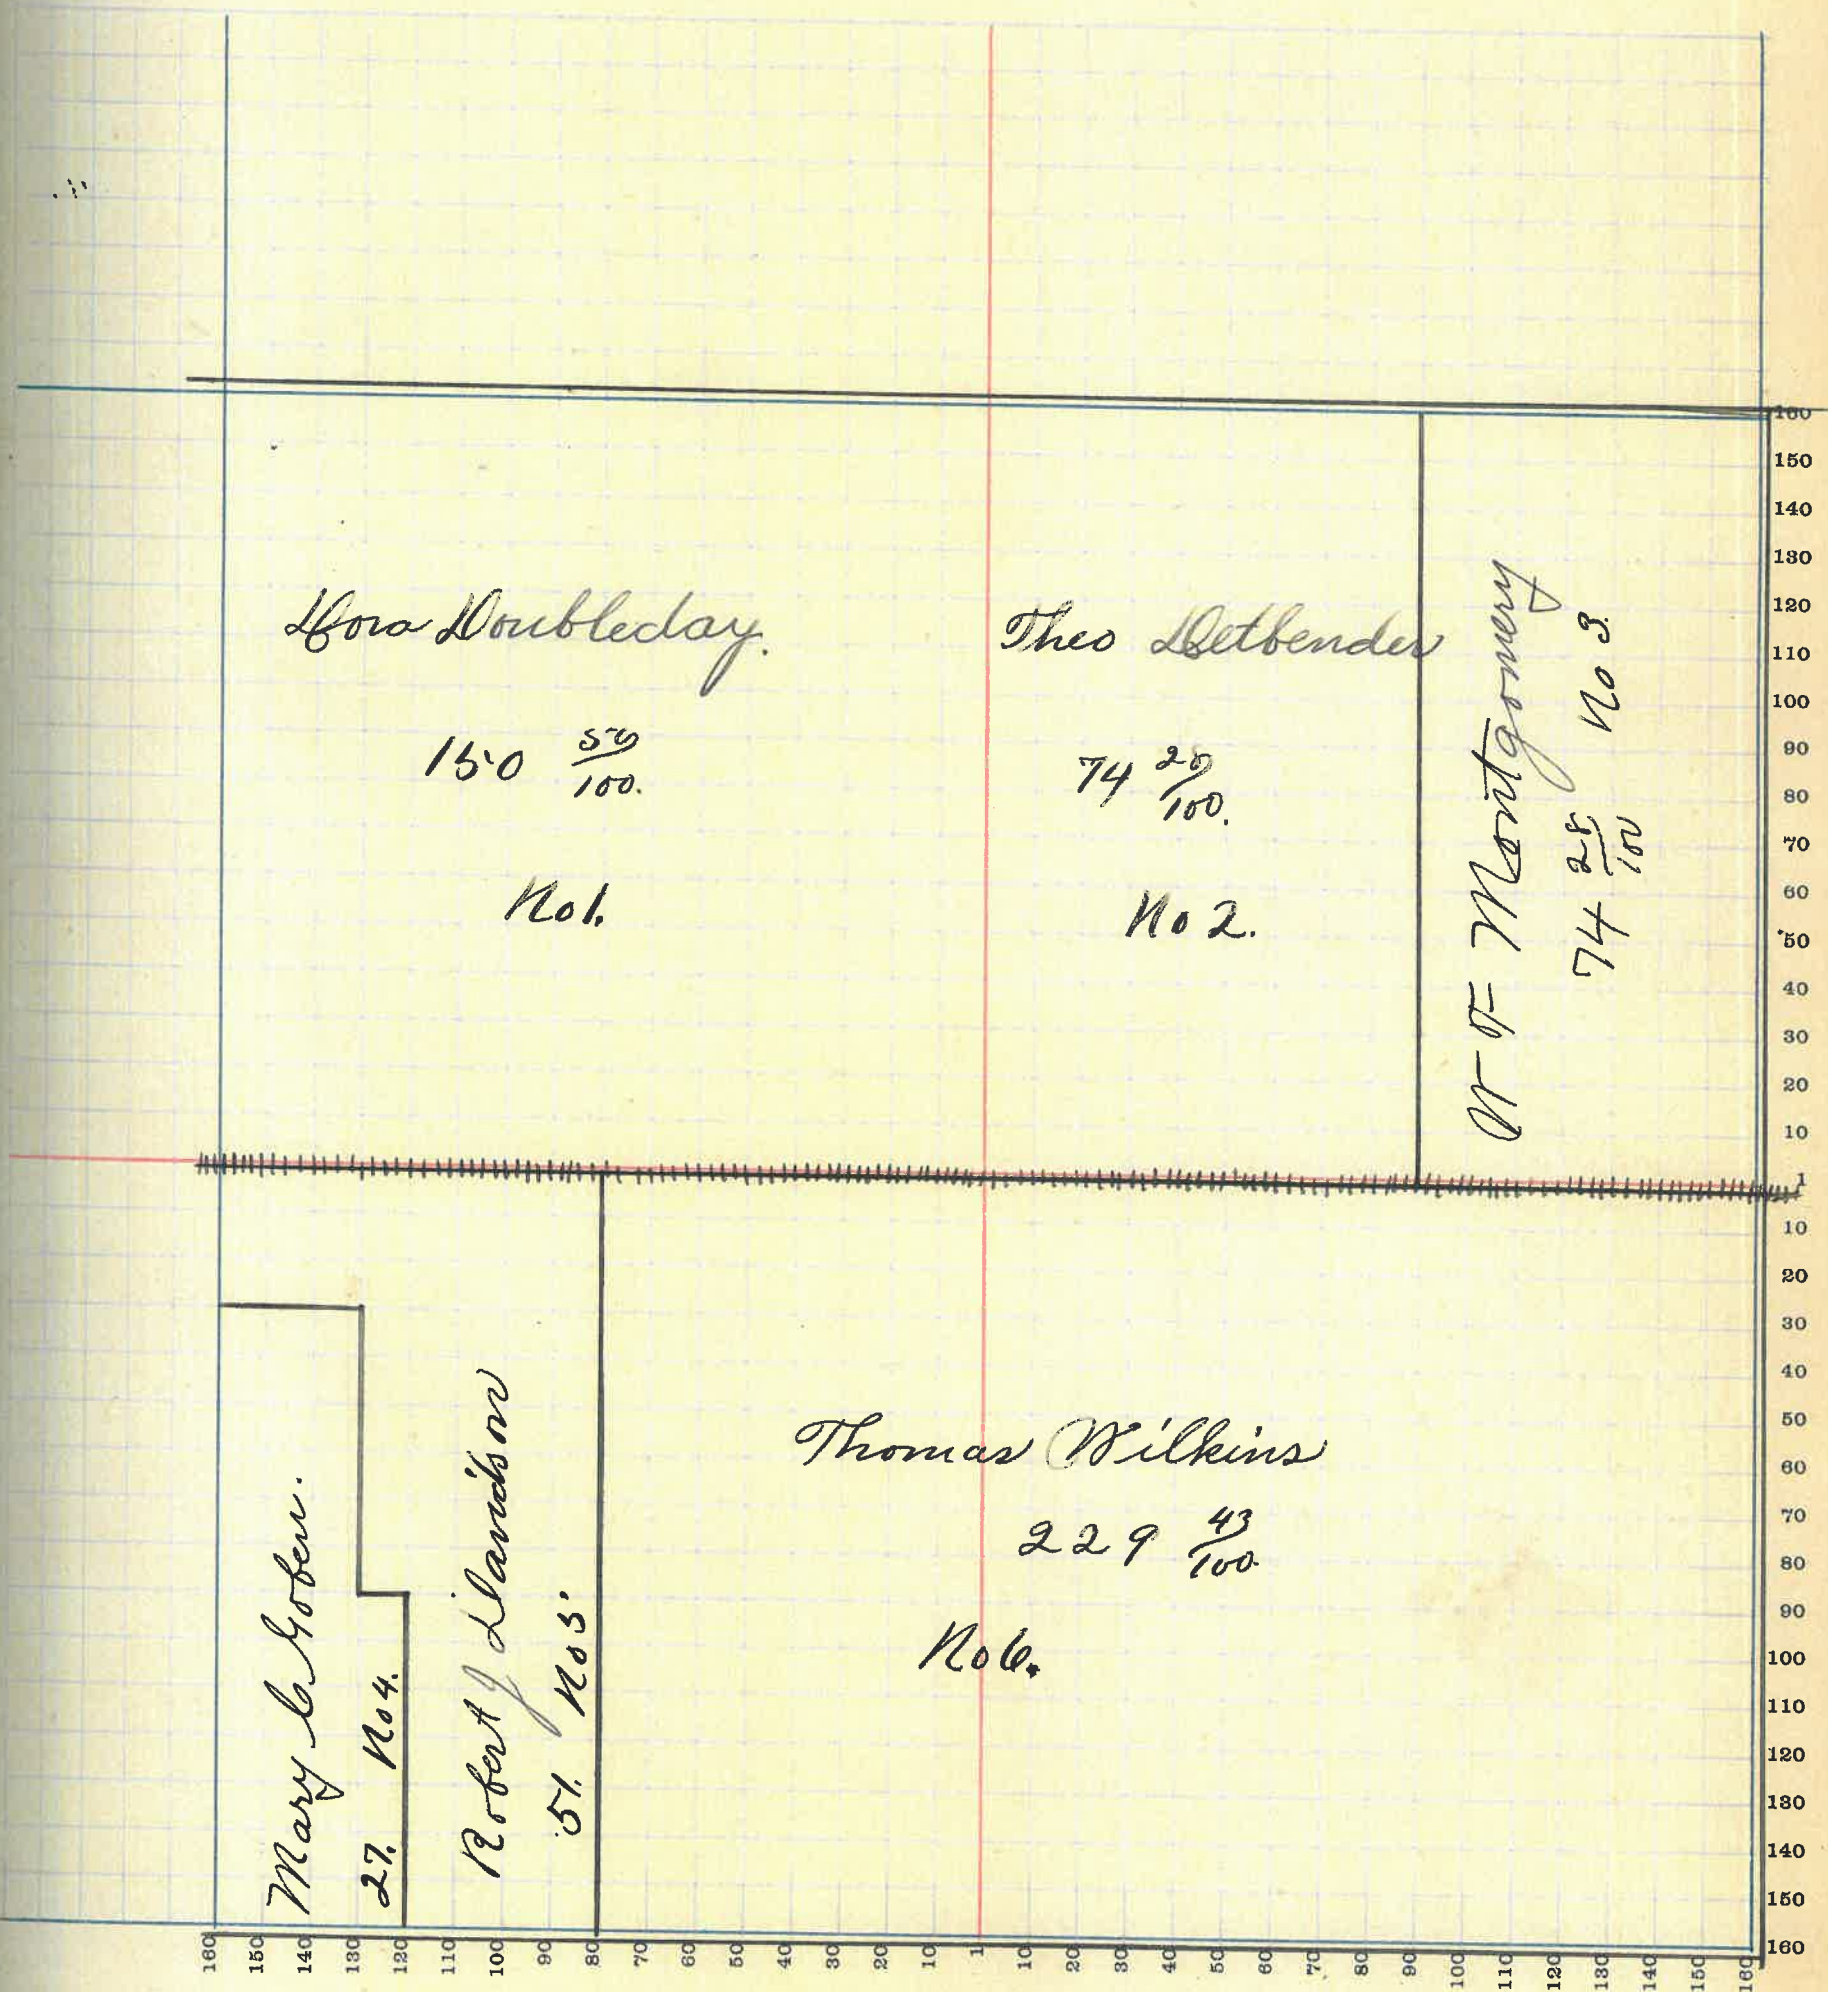 Dora Doubleday.
150 50/100.
No 1.
Theo Detbender
74 20/100.
No 2.
W F Montgomery
74 28/100 No 3.
Mary C Goben.
27. No 4.
Robert J Davidson
51. No 5.
Thomas Wilkins
229 43/100.
No 6.
160
150
140
130
120
110
100
90
80
70
60
50
40
30
20
10
1
10
20
30
40
50
60
70
80
90
100
110
120
130
140
150
160
160 150 140 130 120 110 100 90 80 70 60 50 40 30 20 10 1 10 20 30 40 50 60 70 80 90 100 110 120 130 140 150 160